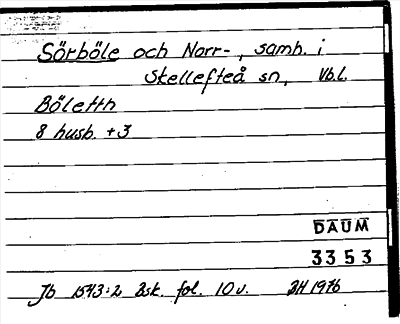 Sörböle och Norr-, samh. i
Skellefteå sn, Vbl.
Böletth
8 husb. +3
DAUM
3353
Jb 1543:2 Bsk. fol. 10v. BH 1976